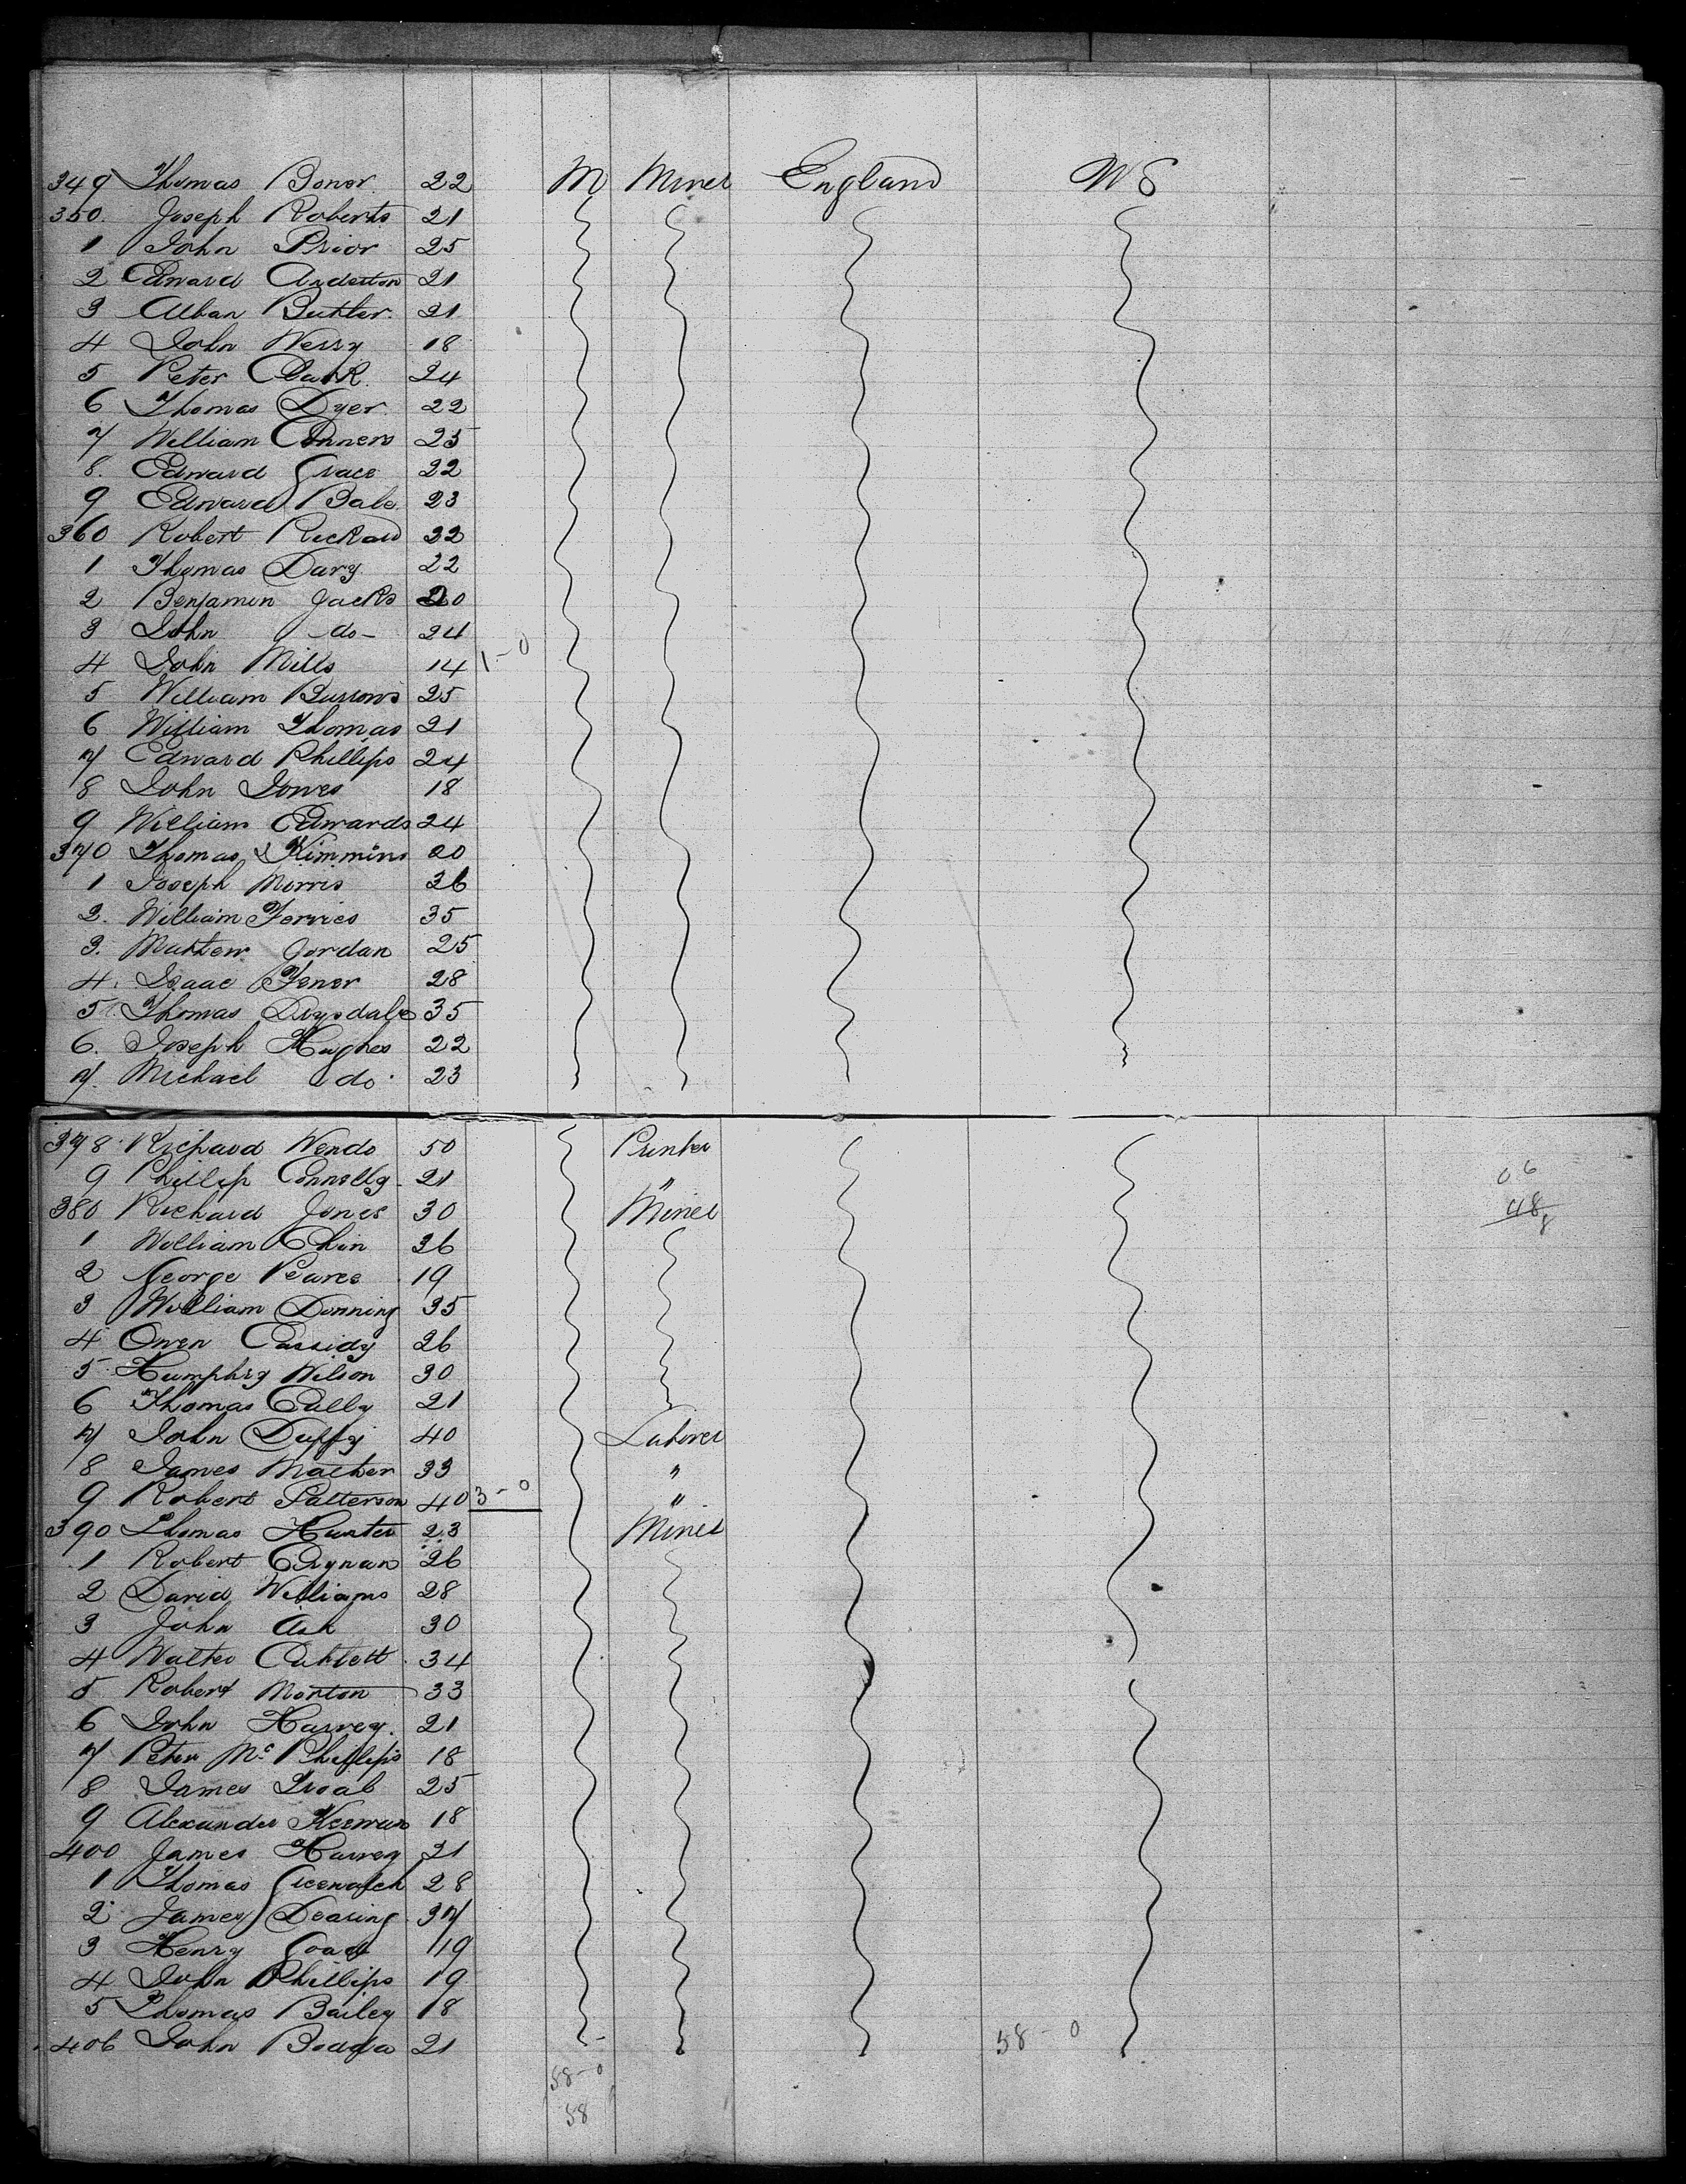 349 Thomas Bonor 22 M Miner England U S
350. Joseph Roberts 21
1 John Prior 25
2 Edward Anderton 21
3 Alban Butler. 21
4 John Werry 18
5 Peter Clark. 24
6 Thomas Dyer. 22
7 William Conners 25
8. Edward Grace 22
9 Edward Bale 23
360 Robert Rickard 22
1 Thomas Davy 22
2 Benjamin Jacks 20
3 John -do- 24
4 John Mills 14 1-0
5 William Burrows 25
6 William Thomas 21
7 Edward Phillips 24
8 John Jones 18
9 William Edwards 24
370 Thomas Kimmins 20
1 Joseph Morris 26
2. William 35
3. Mathew Jordan 25
4. Isaac 28
5. Thomas Drysdale 35
6. Joseph Hughes 22
7. Michael do 23
378 Richard Wends 50 Printer
9 Phillip Connolly 21 "
380 Richard Jones 30 Miner
1 William Chin 36
2 George Pearce 19
3 William Donning 35
4 Owen Cassidy 26
5 Humphry Wilson 30
6 Thomas Cally 21
7 John Duffy 40 Laborer
8 James Mather 33 "
9 Robert Patterson 40 3-0 "
390 Thomas Hunter 23 Miner
1 Robert 26
2 David Williams 28
3 John Ash 30
4 Walter 34
5 Robert Morton 33
6 John Harvey. 21
7 Peter Mc Phillips 18
8 James 25
9 Alexander Keenan 18
400 James Harvey 21
1 Thomas 28
2 James Dearing 37
3 Henry Goad 19
4 John Phillips 19
5 Thomas Bailey 18
406 John 21
58-0
58-0
58